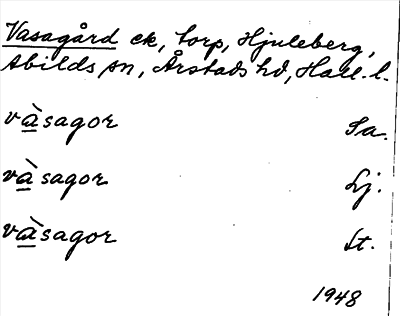 Vasagård ck, torp, Hjuleberg,
Abilds sn, Årstads hd, Hall. l.
và̱sagor Sa.
và̱sagor Lj.
và̱sagor St.
1948